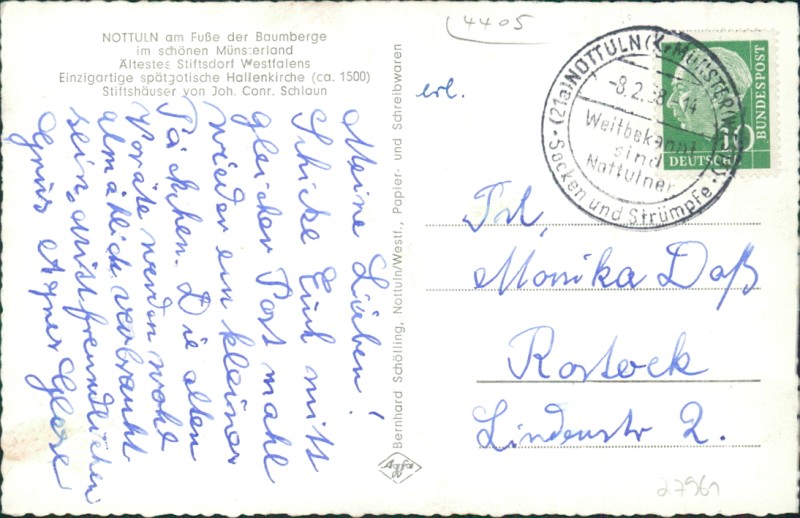 NOTTULN am Fuße der Baumberge
im schönen Münsterland
Ältestes Stiftsdorf Westfalens
Einzigartige spätgotische Hallenkirche (ca. 1500)
Stiftshäuser von Joh. Conr. Schlaun
Meine Lieben!
Schicke Euch mitt
gleicher Post mahl
wieder ein kleiner
Päckchen. Die alten
Voräte werden wohl
almählich verbraucht
sein, mitt freundlichen
Grüs Agnes
Bernhard Schölling, Nottuln/Westf., Papier- und Schreibwaren
Agfa
4405
erl.
(21a) NOTTULN (Kr. MÜNSTER
-8.2.58
-14
Weltbekannt
sind
Nottulner
Socken und Strümpfe
10
DEUTSCHE
BUNDESPOST
Frl,
Monika Daß
Rostock
Lindenstr 2.
27961